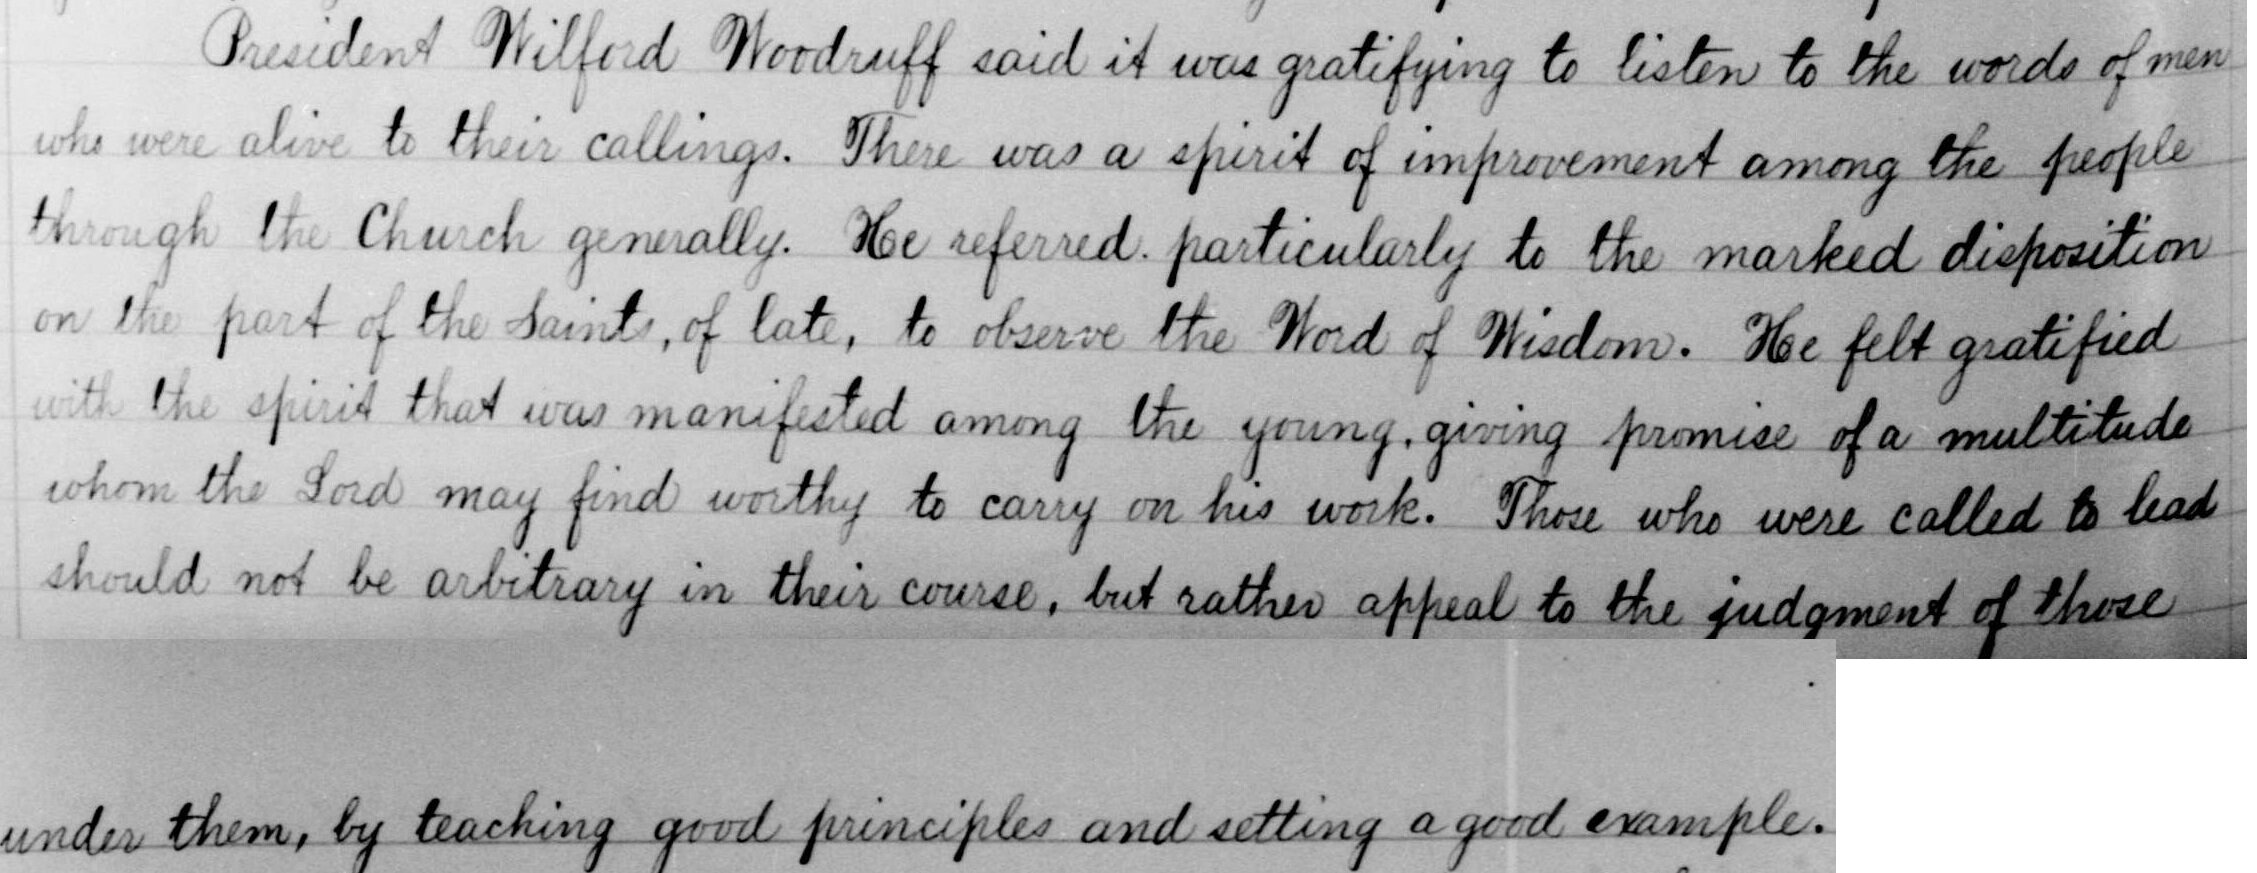 President Wilford Woodruff said it was gratifying to listen to the words of men
who were alive to their callings. There was a spirit of improvement among the people
through the Church generally. He referred. particularly to the marked disposition
on the part of the Saints, of late, to observe the Word of Wisdom. He felt gratified
with the spirit that was manifested among the young, giving promise of a multitude
whom the Lord may find worthy to carry on his work. Those who were called to lead
should not be arbitrary in their course, but rather appeal to the judgment of those
under them, by teaching good principles and setting a good example.